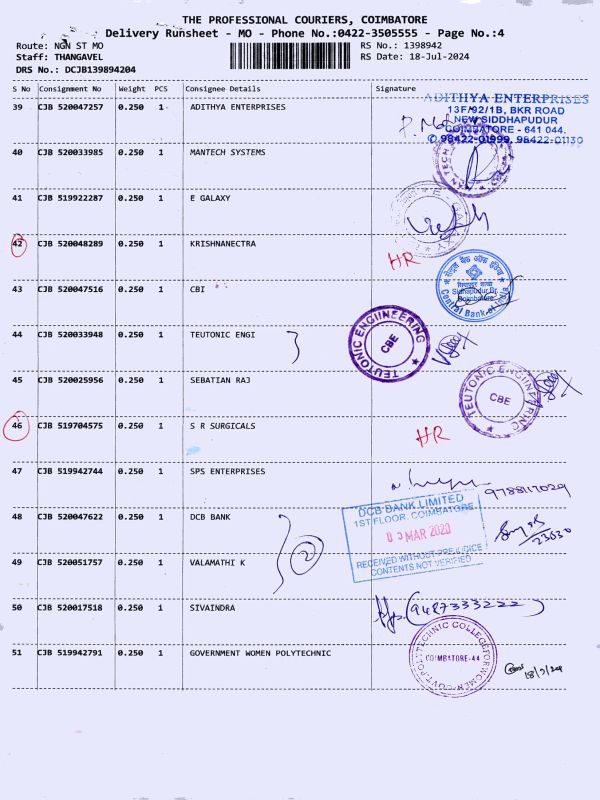 THE PROFESSIONAL COURIERS, COIMBATORE
Delivery Runsheet - MO - Phone No.:0422-3505555 - Page No.:4
Route: NGN ST MO
RS No.: 1398942
Staff: THANGAVEL
RS Date: 18-Jul-2024
DRS No.: DCJB139894204
S No Consignment No Weight PCS Consignee Details Signature
39 CJB 520047257 0.250 1 ADITHYA ENTERPRISES
ADITHYA ENTERPRISES
13F/92/1B, BKR ROAD
NEW SIDDHAPUDUR
COIMBATORE - 641 044.
40 CJB 520033985 0.250 1 MANTECH SYSTEMS
41 CJB 519922287 0.250 1 E GALAXY
42 CJB 520048289 0.250 1 KRISHNANECTRA
HR
43 CJB 520047516 0.250 1 CBI
सेन्ट्रल बैंक ऑफ इंडिया
Sidhapudur Br.
Coimbatore
Central Bank of India
44 CJB 520033948 0.250 1 TEUTONIC ENGI
TEUTONIC ENGIINEERING
CBE
45 CJB 520025956 0.250 1 SEBATIAN RAJ
TEUTONIC ENGIINEERING
CBE
46 CJB 519704575 0.250 1 S R SURGICALS
HR
47 CJB 519942744 0.250 1 SPS ENTERPRISES
9788117029
48 CJB 520047622 0.250 1 DCB BANK
2
DCB BANK LIMITED
1ST FLOOR, COIMBATORE
03 MAR 2020
RECEIVED WITHOUT PREJUDICE
CONTENTS NOT VERIFIED
23030
49 CJB 520051757 0.250 1 VALAMATHI K
50 CJB 520017518 0.250 1 SIVAINDRA
(9487333222)
51 CJB 519942791 0.250 1 GOVERNMENT WOMEN POLYTECHNIC
GOVT.POLYTECHNIC COLLEGE FOR WOMEN
COIMBATORE-44
18/7/24